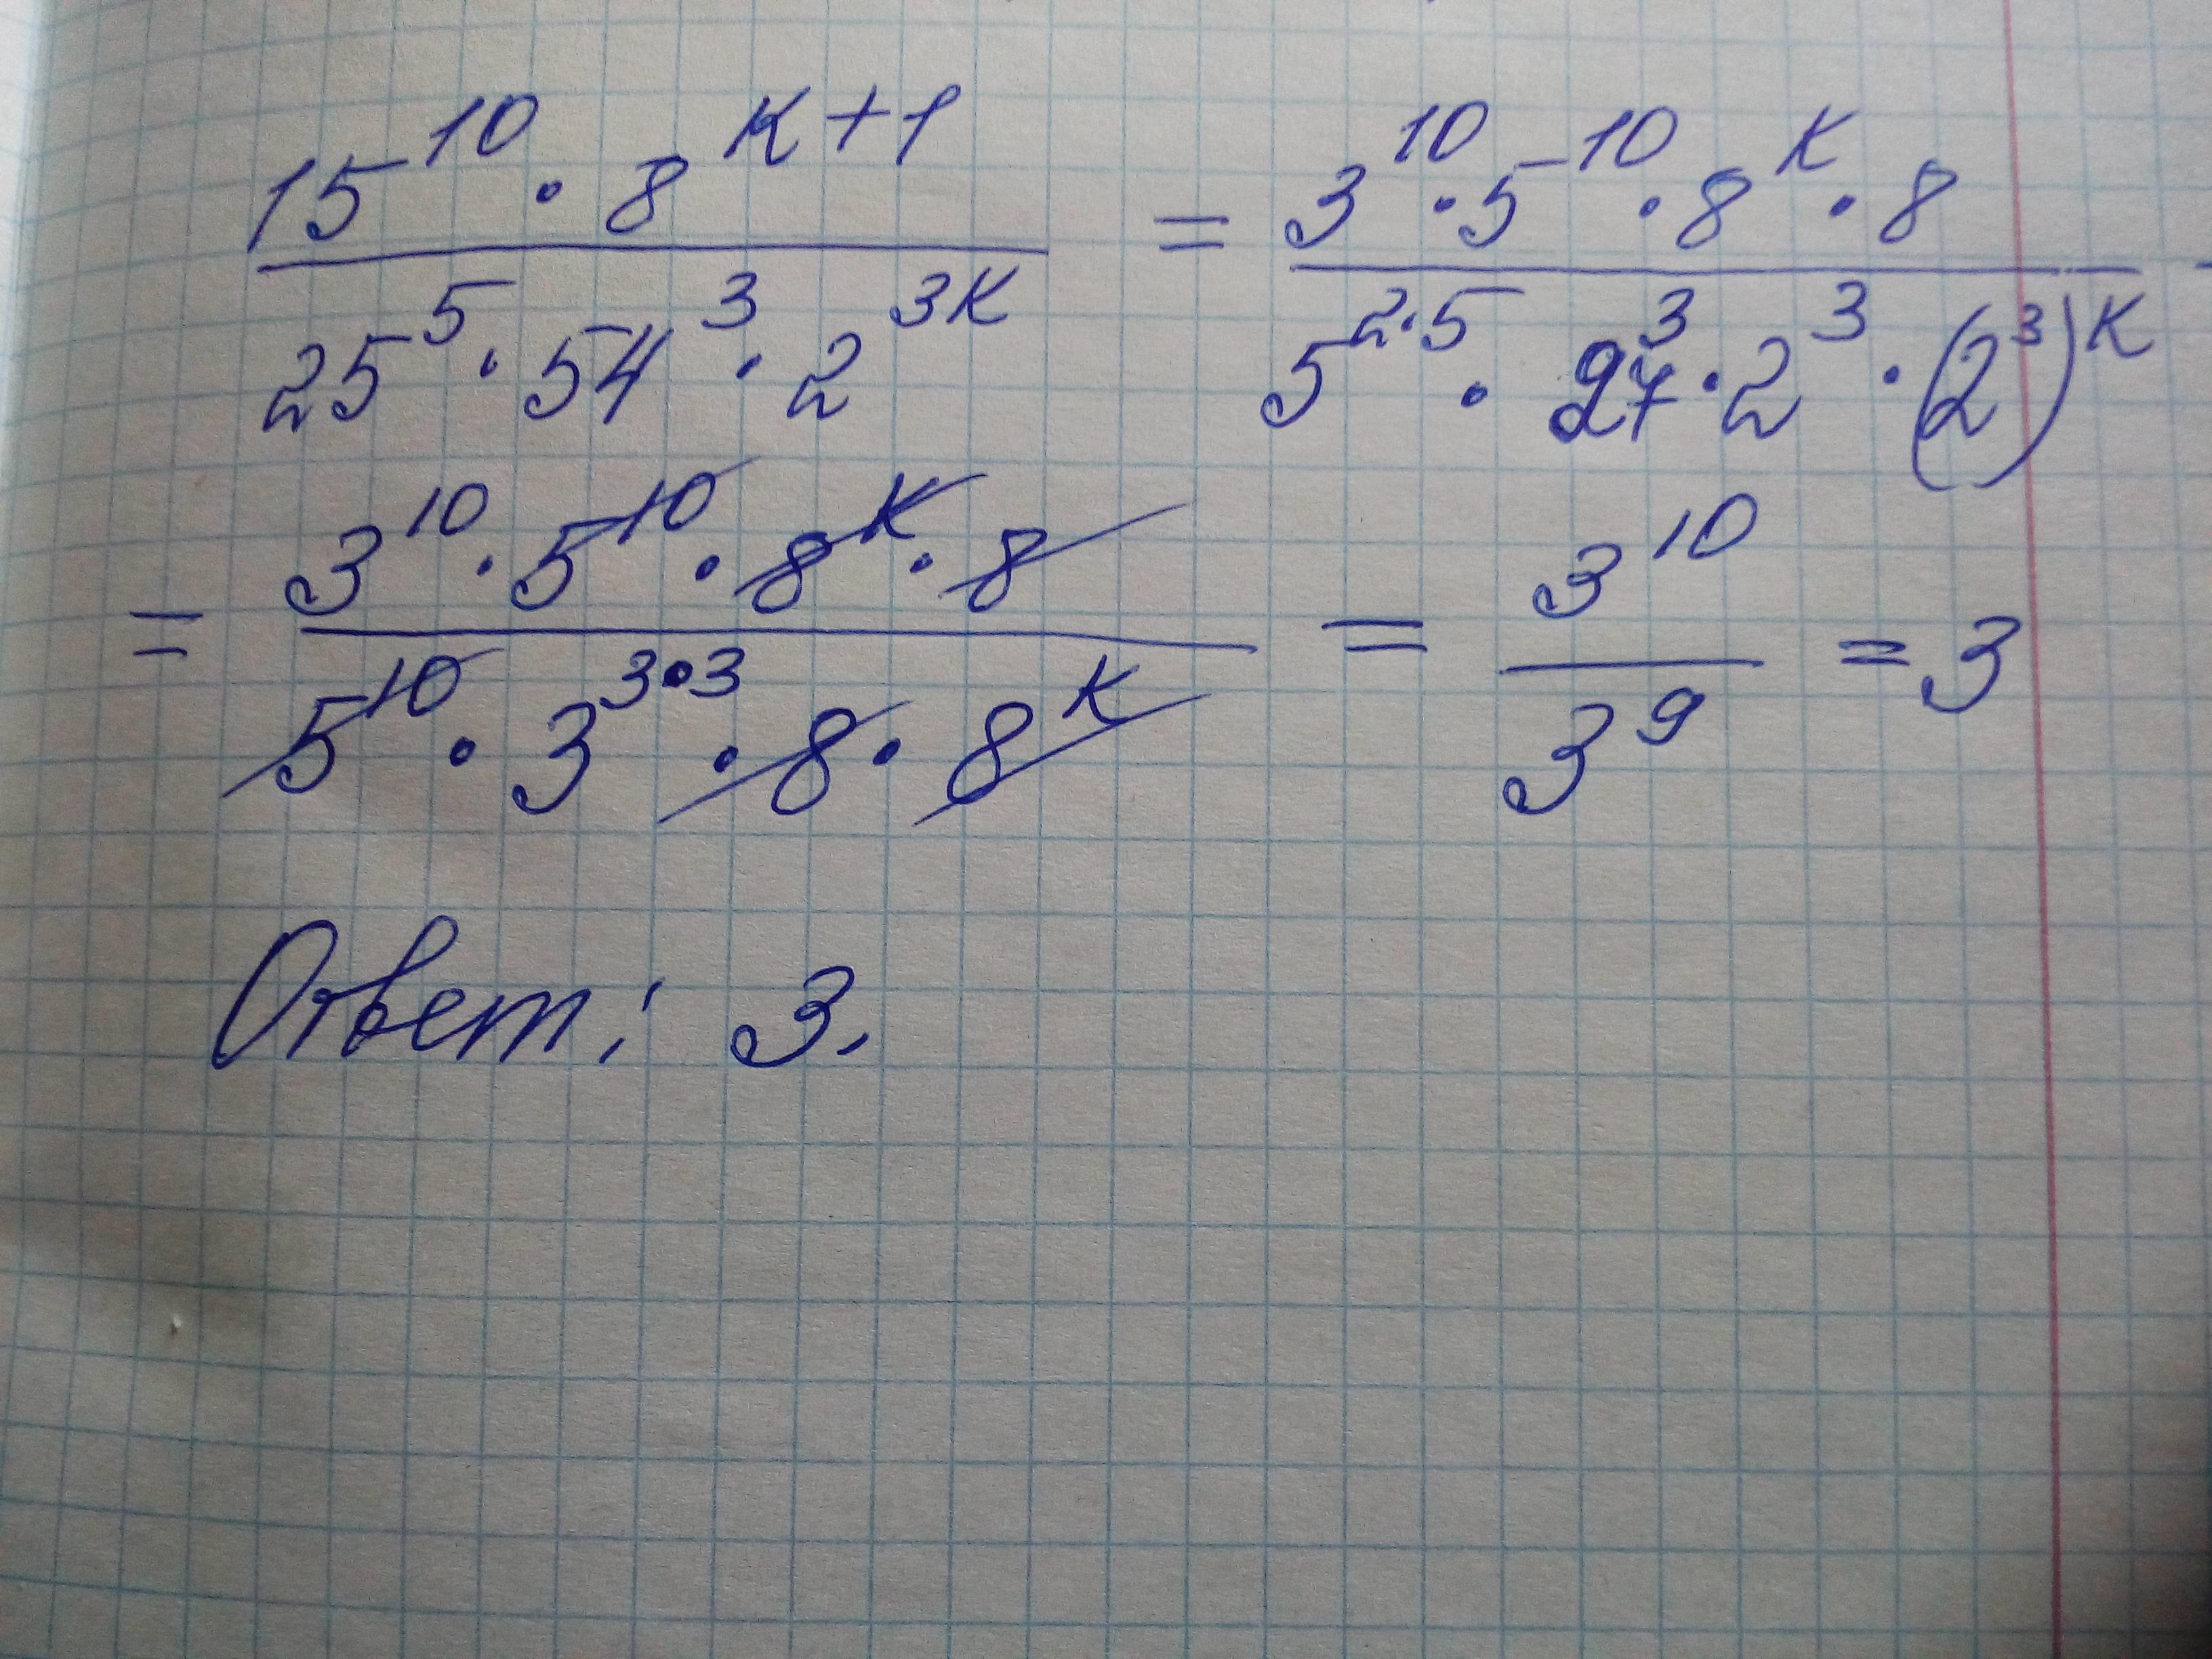 15^10 · 8^(к+1) / 25^5 · 54^3 · 2^(3к) = 3^10 · 5^10 · 8^к · 8 / 5^(2·5) · 27^3 · 2^3 · (2^3)^к
= 3^10 · 5^10 · 8^к · 8 / 5^10 · 3^(3·3) · 8 · 8^к = 3^10 / 3^9 = 3
Ответ: 3.